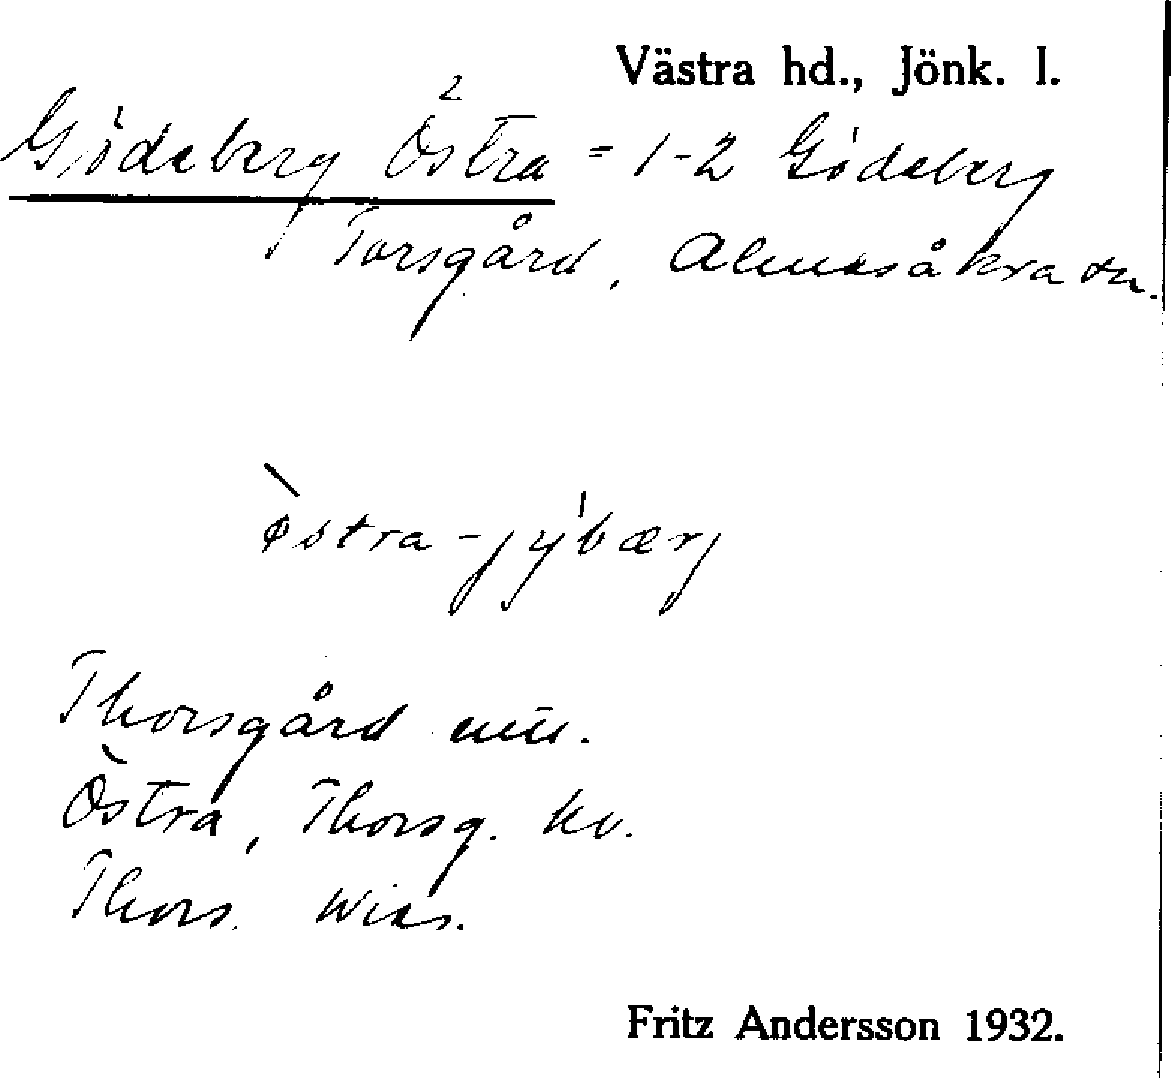 Västra hd., Jönk. l.
2
Gödeberg Östra = 1-2 Gödeberg
Torsgård, Almesåkra sn.
østra-jýbærj
Thorsgård
Östra, Thorsg. kv.
Thors. Wies.
Fritz Andersson 1932.